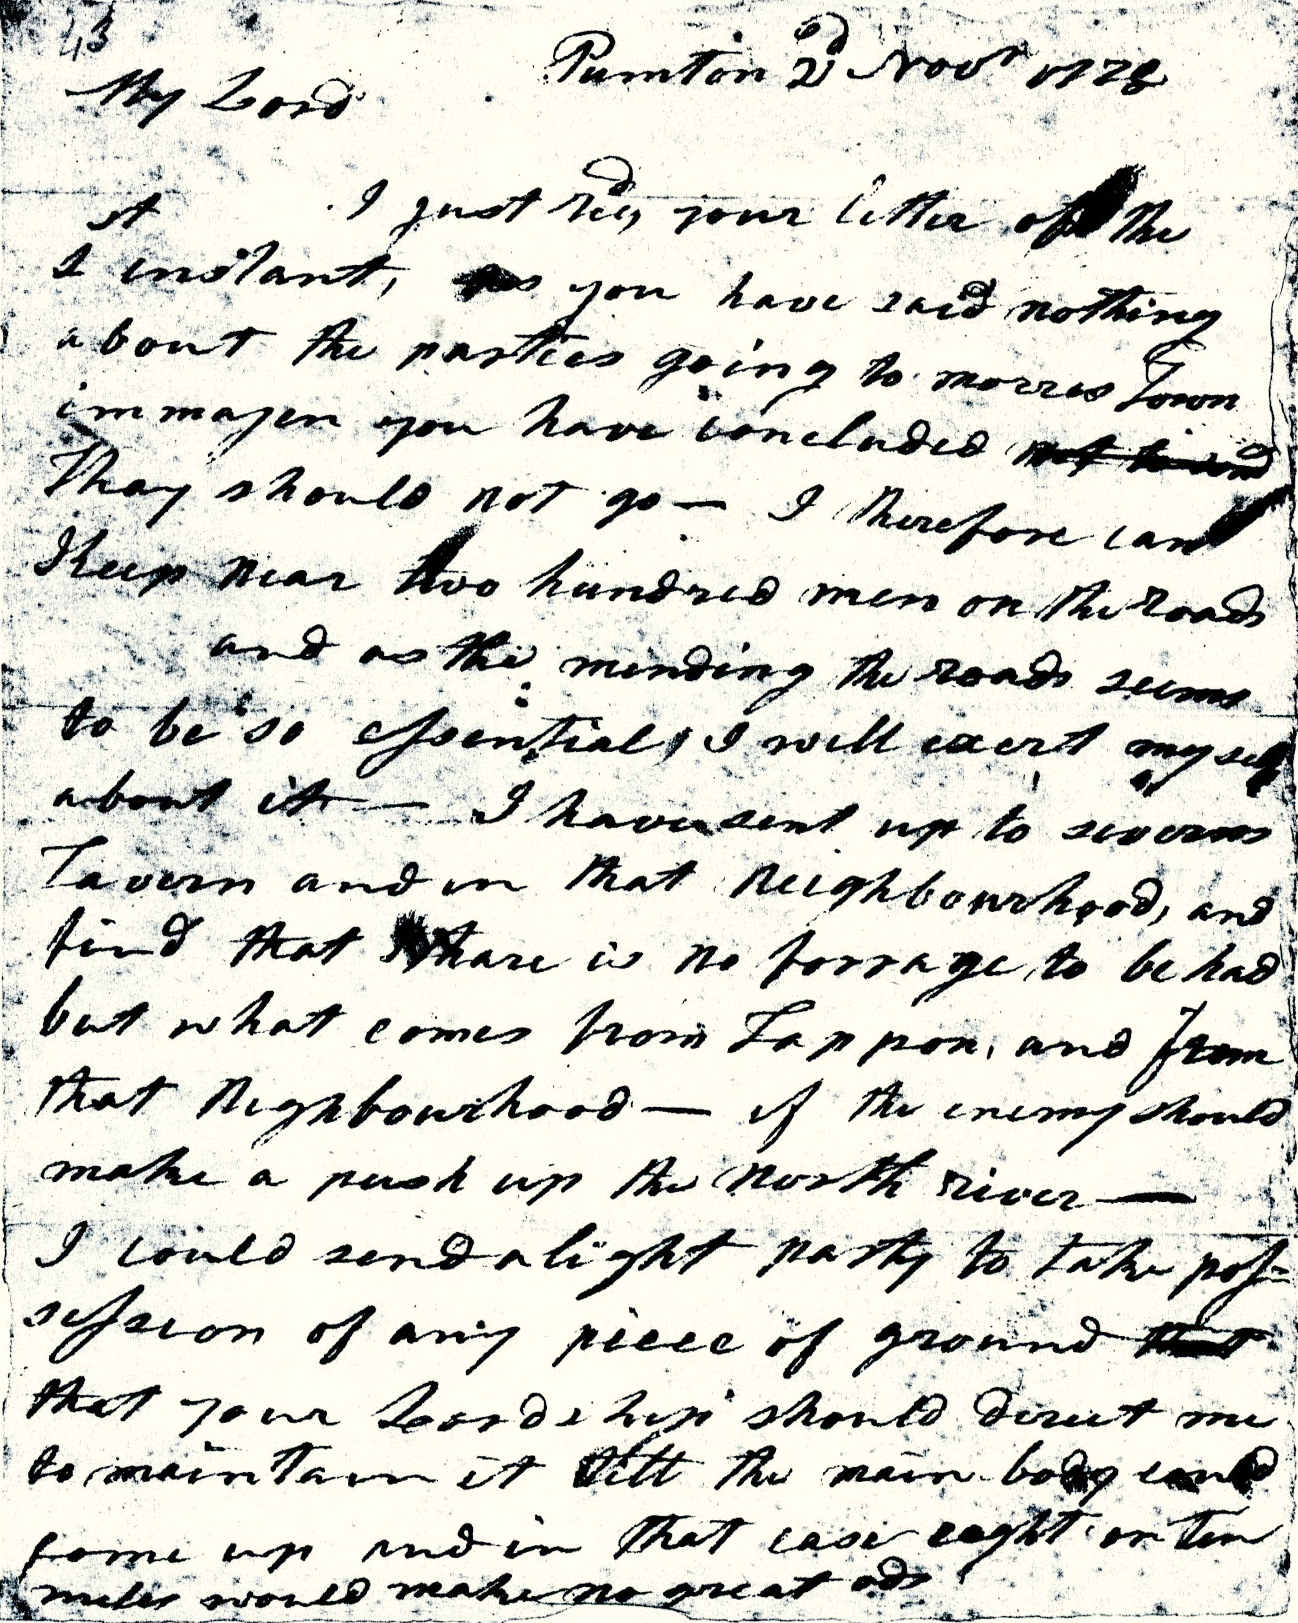 43
Pumton 2d Novr 1778
My Lord
I just recd, your letter of the
1st instant, as you have said nothing
about the parties going to morres Town
immajen you have concluded
Thay should not go — I therefore can
Keep near two hundred men on the roads
and as the mending the roads seems
to be so essential, I will exert myself
about it — I have sent up to severns
Tavern and in that Neighbourhood, and
find that thare is no forrage to be had
but what comes from Tappon, and from
that Neighbourhood — if the enemy should
make a push up the North river —
I could send a light party to take pos=
session of any piece of ground that
that your Loordship should direct me
to maintain it till the main body could
come up and in that case eaght or ten
miles would make no great ods